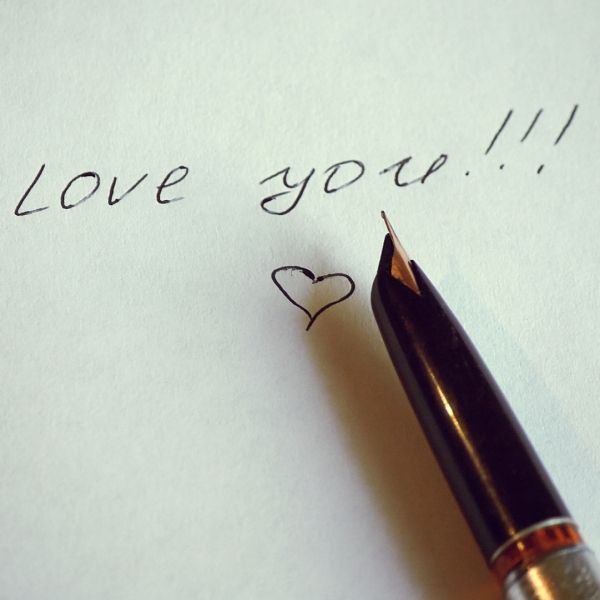 Love you!!!